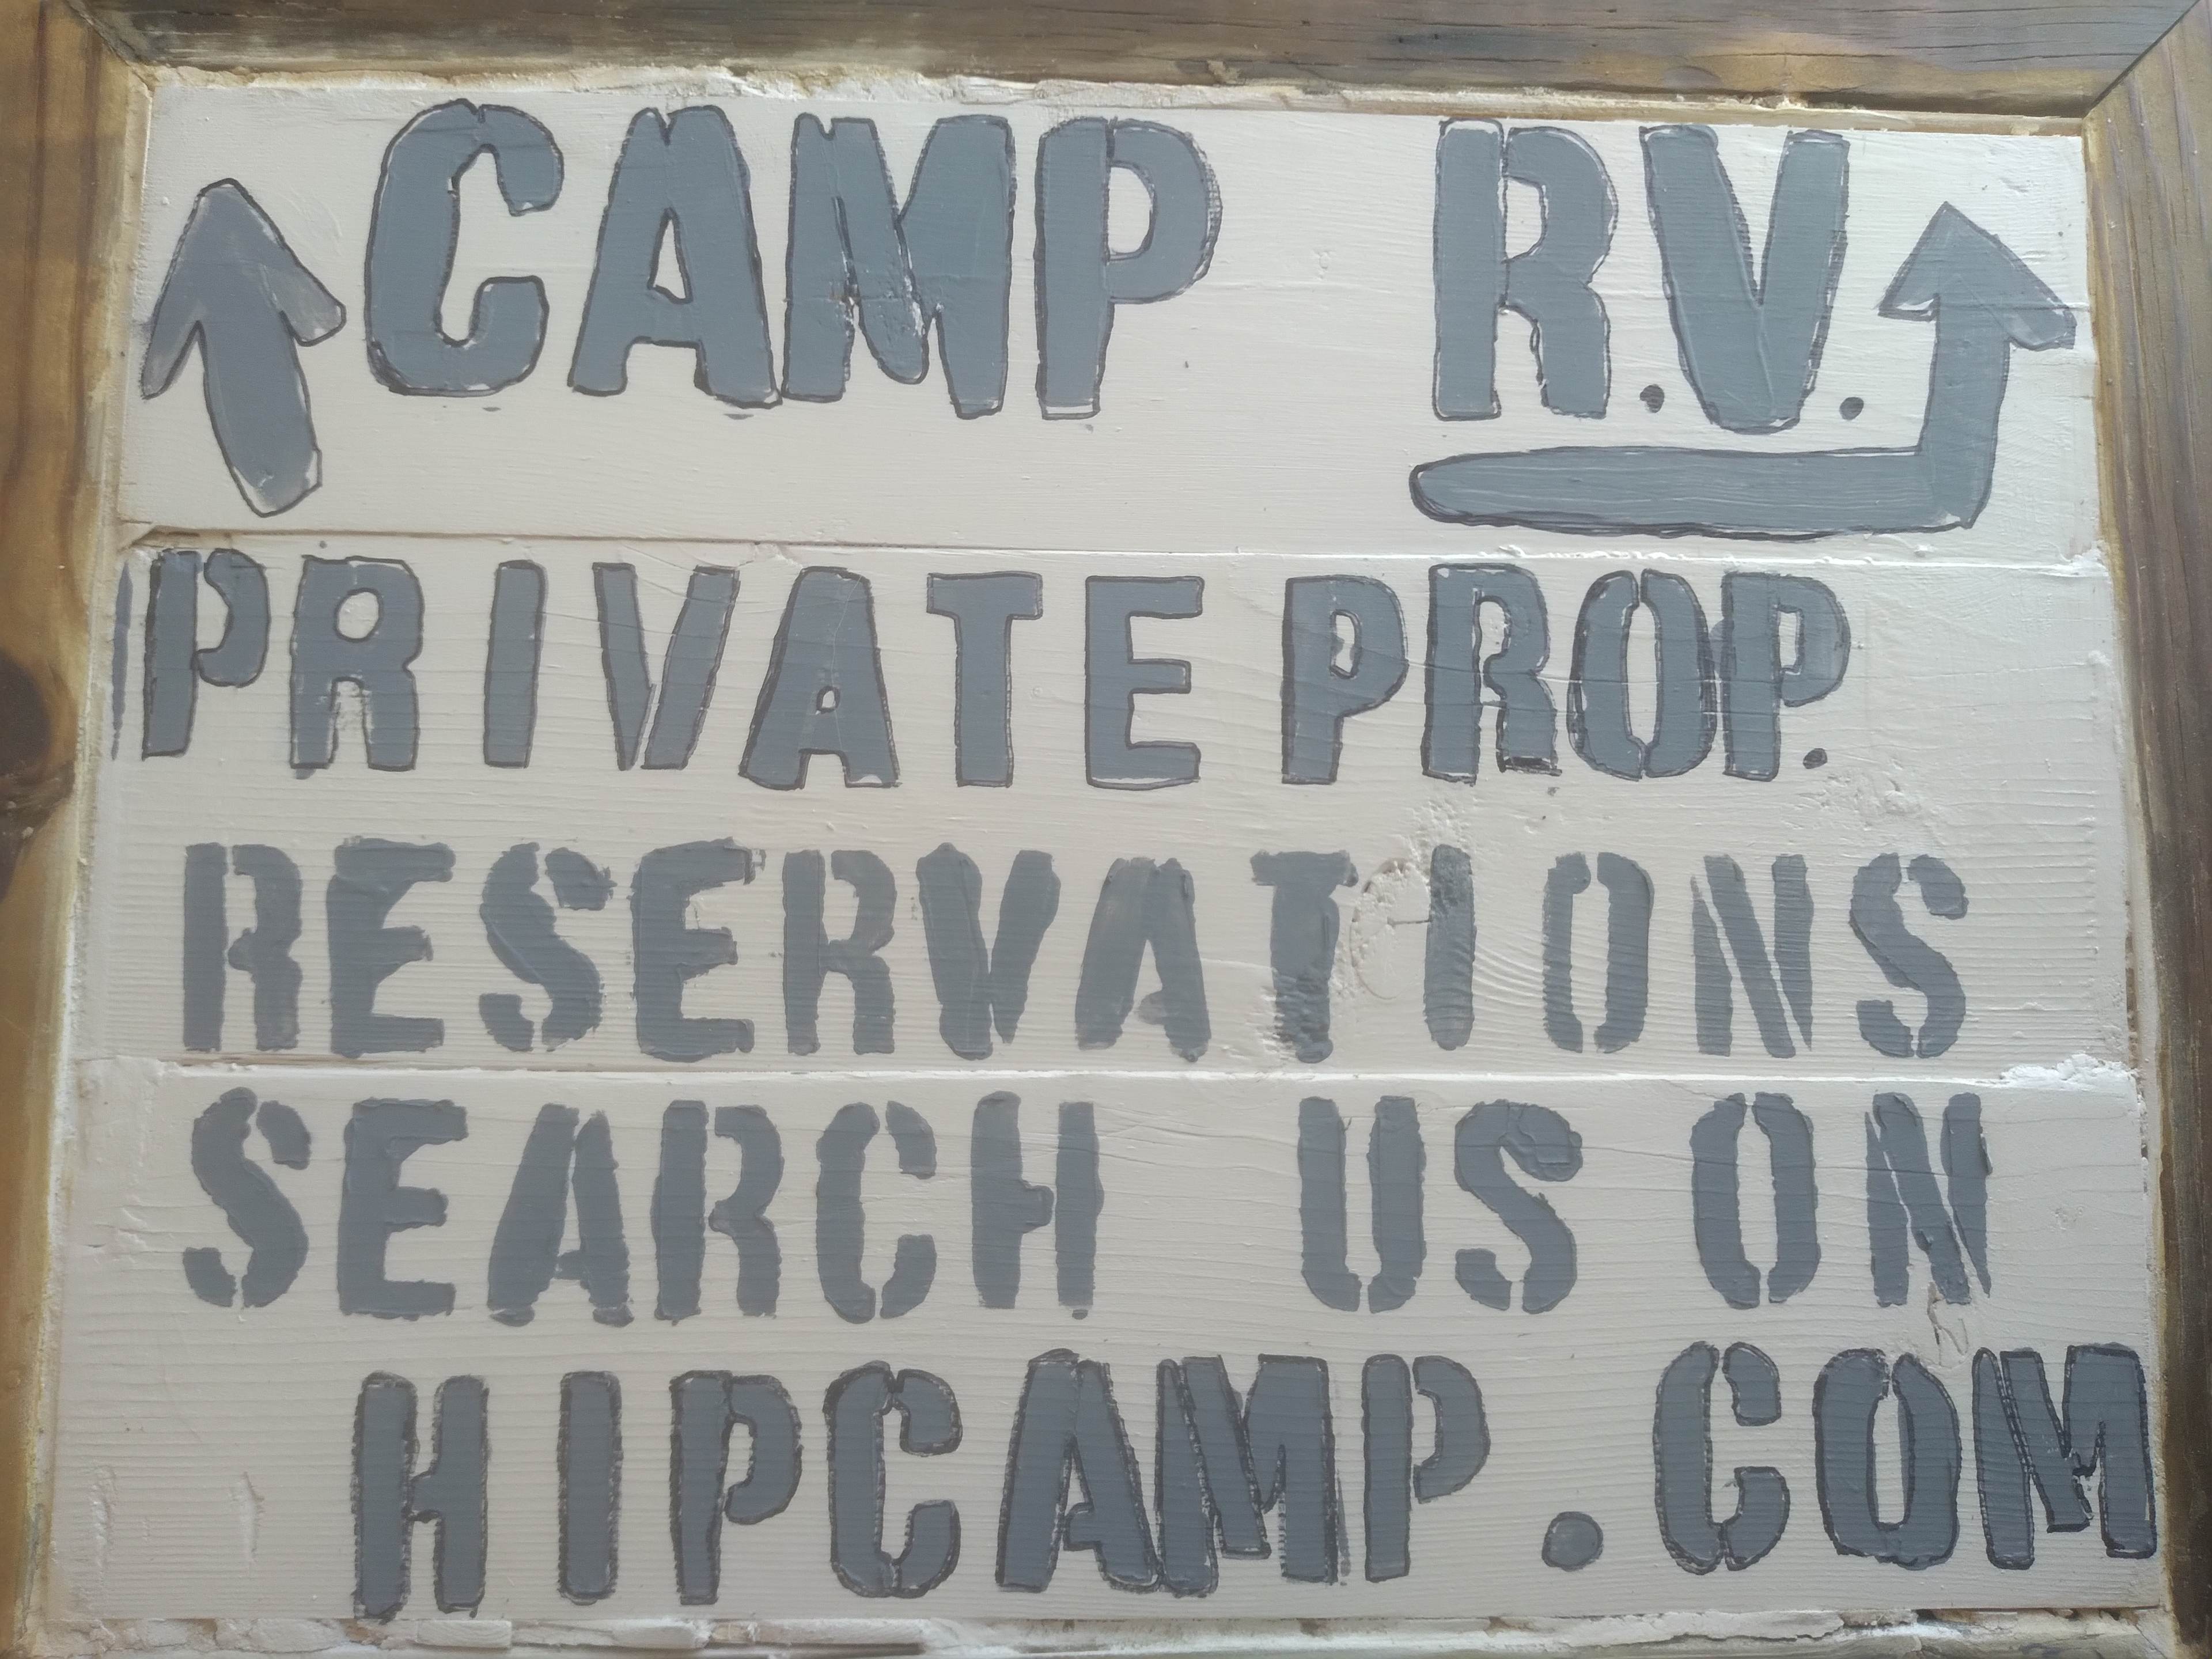 CAMP R.V.
PRIVATE PROP.
RESERVATIONS
SEARCH US ON
HIPCAMP.COM